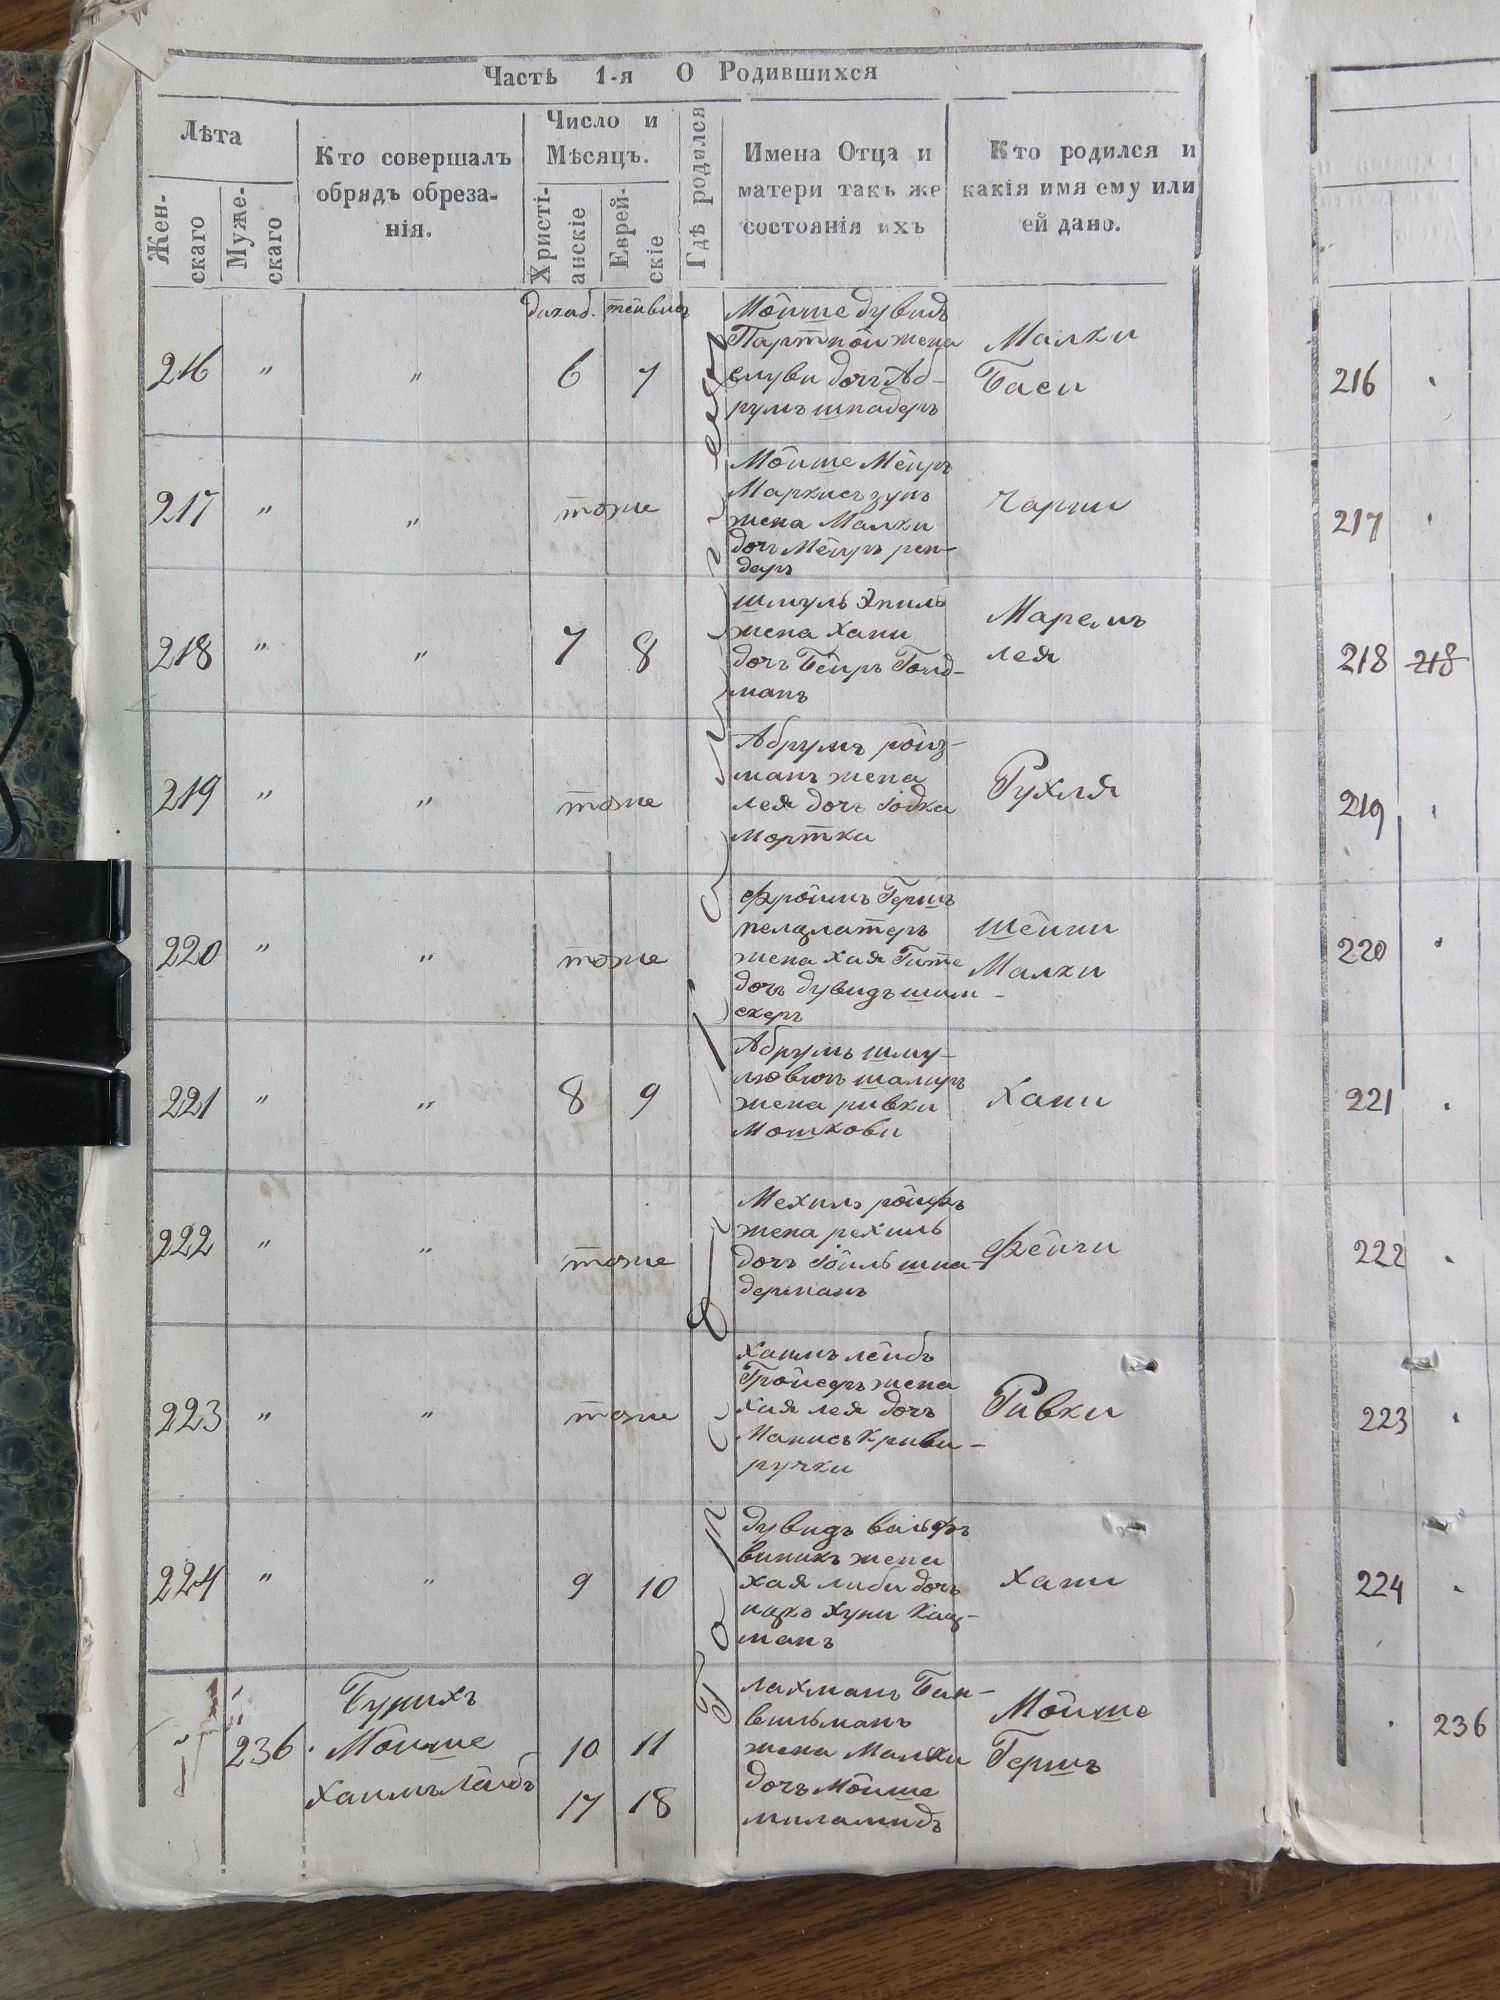 Часть 1-я О Родившихся
Лѣта
Жен-
скаго
Муже-
скаго
Кто совершалъ
обрядъ обреза-
нія.
Число и
Мѣсяцъ.
Христі-
анскіе
Еврей-
скіе
Гдѣ родился
Имена Отца и
матери такъ же
состоянія ихъ
Кто родился и
какія имя ему или
ей дано.
216 " " 6 7
Мойше дувидъ
Партной жена
слуви дочъ Аб-
румъ шнадеръ
Малки
Баси
217 " " тоже
Мойше Меиръ
жена Малки
дочъ Меиръ рен-
деръ
Чарни
218 " " 7 8
шмуль Эпиль
жена Хани
дочъ Беиръ Голд-
манъ
Маремъ
лея
219 " " тоже
Абрумъ ройз-
манъ жена
лея дочъ
мортка
Рухля
220 " " тоже
Фроимъ Гершъ
жена хая Гите
дочъ дувидъ шмы-
Шейни
Малки
221 " " 8 9
Абрумъ шму-
жена ривки
Мошкови
Хани
222 " " тоже
Мехиль ройфъ
жена рехиль
дочъ Йойль шна-
дерманъ
Фейги
223 " " тоже
Хаимъ лейбъ
Гройсеръ жена
Хая лея дочъ
Манисъ Криви-
ручки
Ривки
224 " " 9 10
дувидъ вольфъ
виникъ жена
хая либи дочъ
ицко хуни Кац-
манъ
Хани
236
Бурихъ
Мойше
Хаимъ Лейбъ
10 11
17 18
лахманъ Бан-
вельманъ
жена Малки
дочъ Мойше
миламидъ
Мойше
Гершъ
216
217
218 218
219
220
221
222
223
224
236